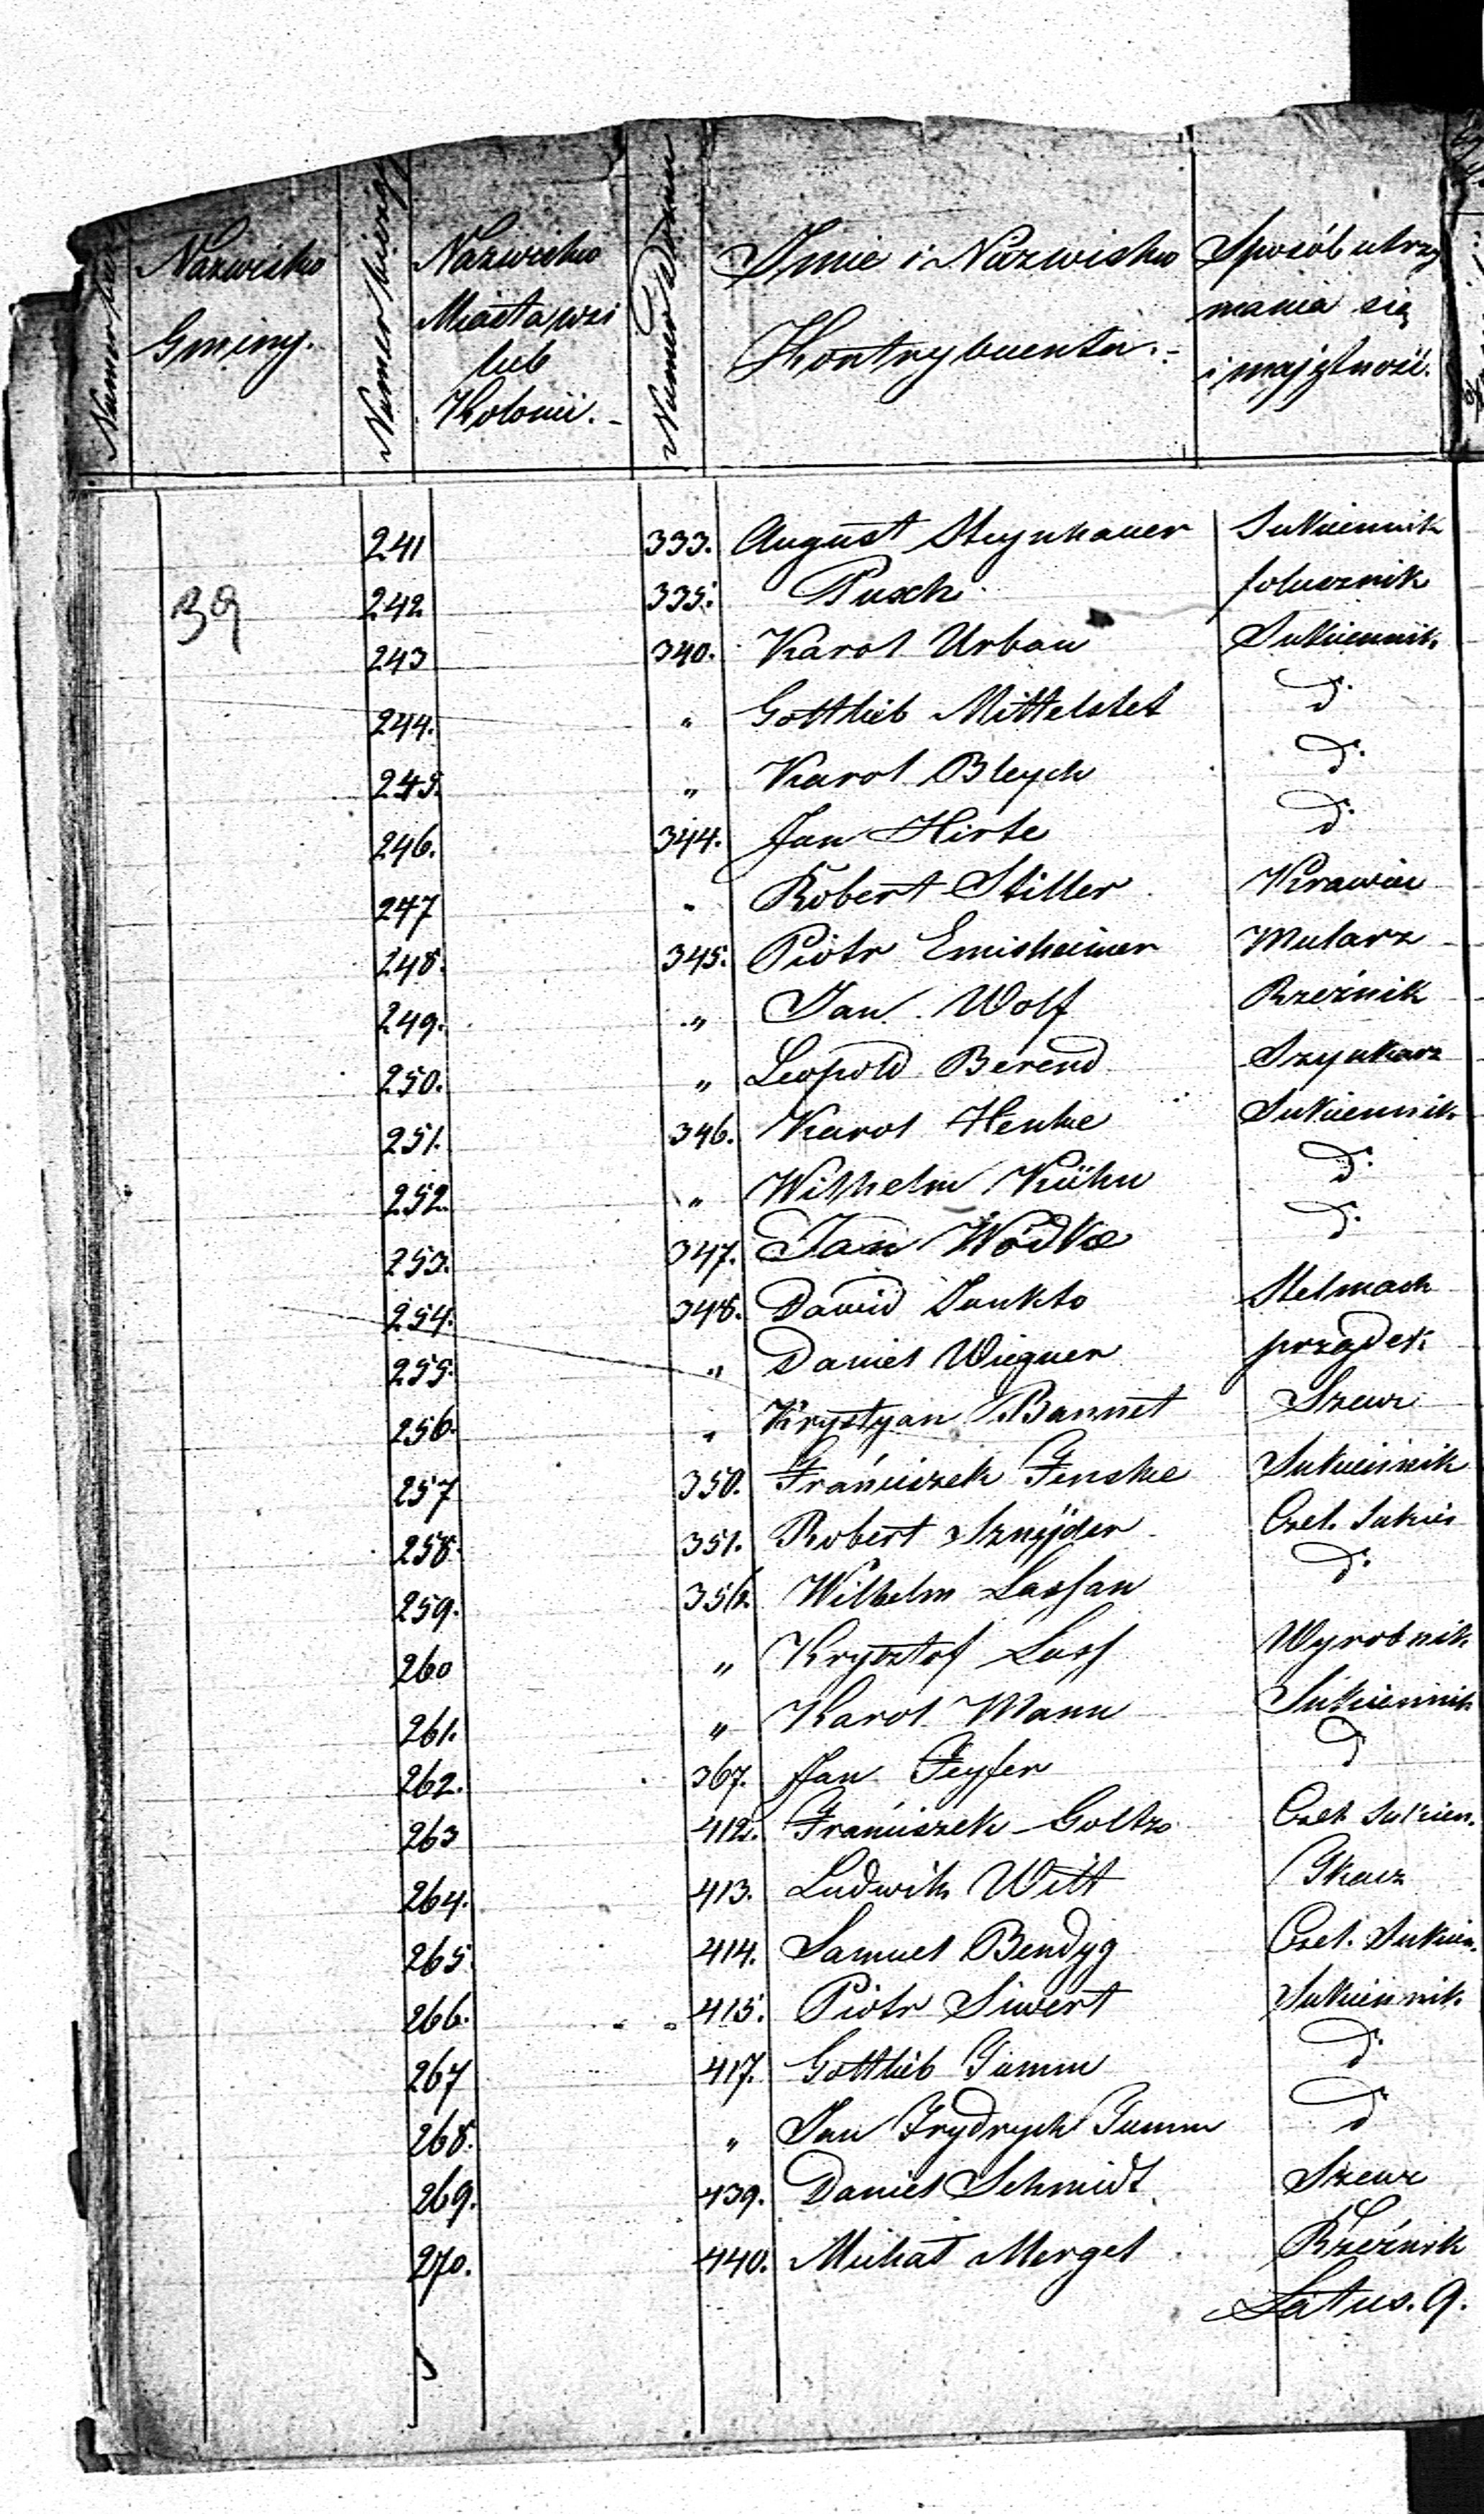 Nazwisko Gminy.
Numer bieżący
Nazwisko Miasta wsi lub Kolonii.
Numer Domu
Imie i Nazwisko Kontrybuenta.
Sposób utrzymania się i majętność.
39
241 333. August Steynhauer Sukiennik
242 335. Pusch folusznik
243 340. Karol Urban Sukiennik
244. " Gottlieb Mittelstet d.
245. " Karol Bleych d.
246. 344. Jan Hirte d.
247 " Robert Stiller Krawiec
248. 345. Piotr Emisheimer Mularz
249. " Jan Wolf Rzeźnik
250. " Leopold Berend Szynkarz
251. 346. Karol Henke Sukiennik
252. " Wilhelm Kühn d.
253. 347. Jan Wódka d.
254. 348. Dawid Junkto Stelmach
255. " Daniel Wiegner prządek
256. " Krystyan Bannet Szewc
257 350. Franciszek Fenske Sukiennik
258. 351. Robert Sznÿder Czel. Sukien
259. 356. Wilhelm Lassan d.
260 " Krysztof Lass Wyrobnik
261. " Karol Mann Sukiennik
262. 367. Jan Feyfer d
263 412. Franciszek Goltz Czel. Sukien.
264. 413. Ludwik Witt Tkacz
265 414. Samuel Bendyg Czel. Sukien.
266. 415. Piotr Siwert Sukiennik
267 417. Gottlieb Tumm d.
268. " Jan Frydrych Tumm d
269. 439. Daniel Schmidt Szewc
270. 440. Michał Mergel Rzeźnik
Latus. 9.